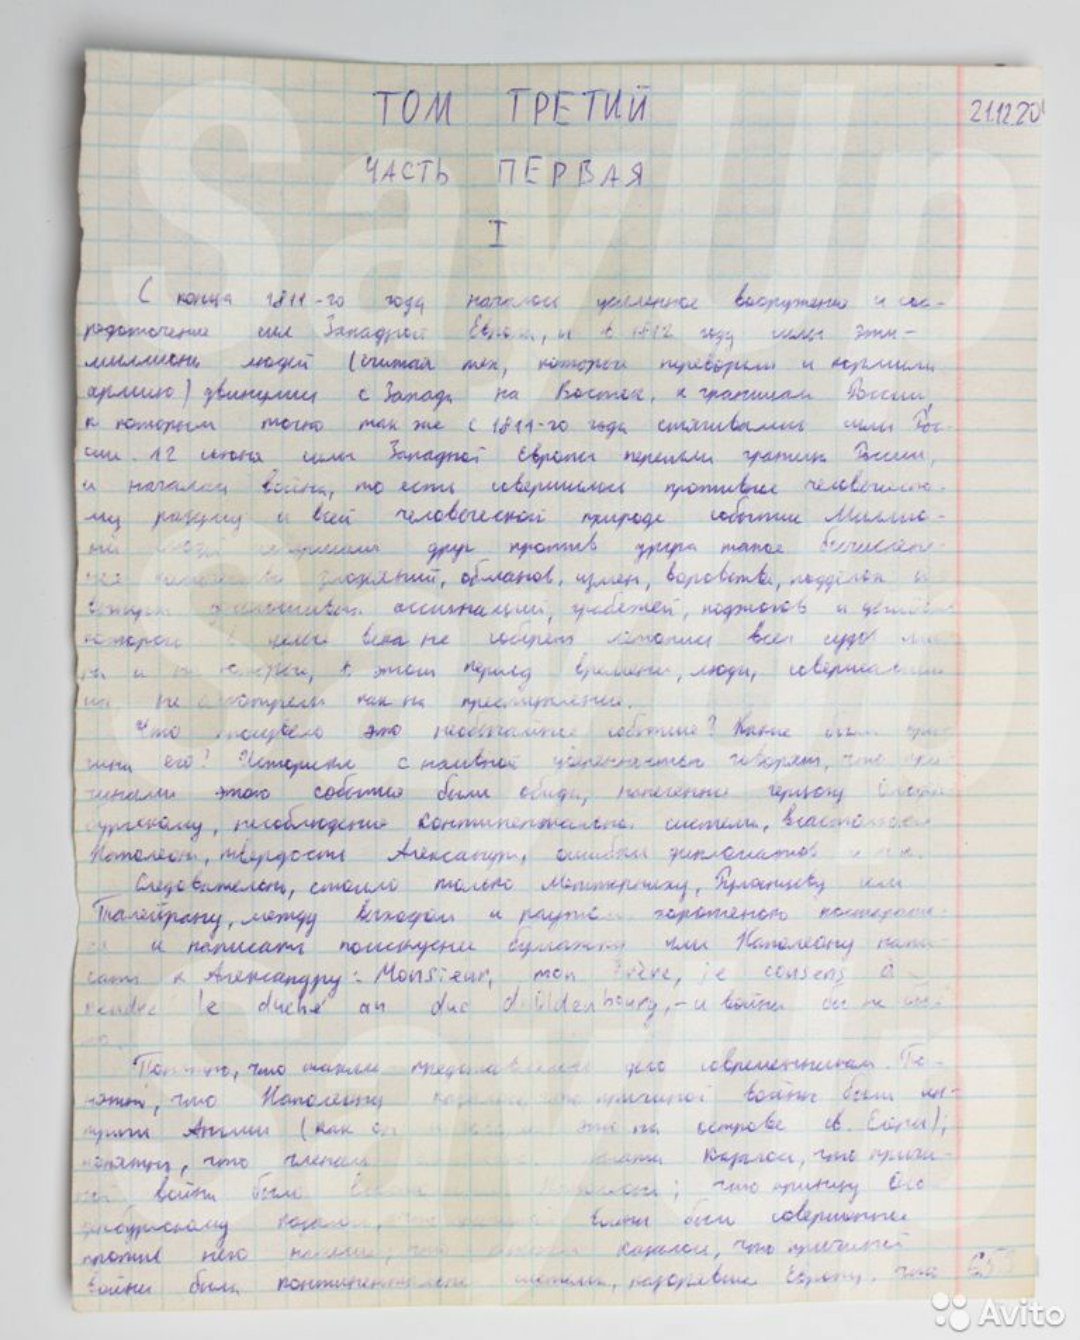 ТОМ ТРЕТИЙ
21.12.20
ЧАСТЬ ПЕРВАЯ
I
С конца 1811-го года началось усиленное вооружение и сос-
редоточение сил Западной Европы, и в 1812 году силы эти -
миллионы людей (считая тех, которые перевозили и кормили
армию) двинулись с Запада на Восток, к границам России,
к которым точно так же с 1811-го года стягивались силы Рос-
сии. 12 июня силы Западной Европы перешли границы России,
и началась война, то есть совершилось противное человеческо-
му разуму и всей человеческой природе событие. Миллио-
ны друг против друга такое бесчислен-
ное злодеяний, обманов, измен, воровства, подделок и
ассигнаций, грабежей, поджогов и
которого в целые века не соберет летопись всех судов ми-
ра и на которые, в этот период времени, люди, совершавшие
их, не смотрели как на преступления.
Что произвело это необычайное событие? Какие были при-
чины его? Историки с наивной уверенностью говорят, что при-
чинами этого события были обида, нанесенная герцогу Ольден-
бургскому, несоблюдение континентальной системы, властолюбие
Наполеона, твердость Александра, ошибки дипломатов и т.п.
Следовательно, стоило только Меттерниху, Румянцеву или
Талейрану, между выходом и раутом хорошенько постарать-
ся и написать поискуснее бумажку или Наполеону напи-
сать к Александру: Monsieur, mon frère, je consens à
rendre le duché au duc d'Oldenbourg, - и войны бы не
Понятно, что такое представлялось дело современникам. По-
нятно, что Наполеону казалось, что причиной войны были ин-
триги Англии (как он это на острове св. Елены);
понятно, что членам палаты казалось, что причи-
ной войны было Наполеона; что принцу Оль-
денбургскому казалось, что войны было совершенное
против него насилие; что казалось, что причиной
войны была континентальная система, разорявшая Европу, что
SayUp
SayUp
SayUp
Avito